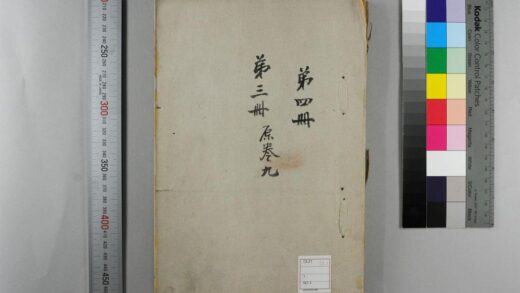 第四冊
第三冊 原卷九
Kodak Color Control Patches
Blue
Cyan
Green
Yellow
Red
Magenta
White
3/Color
Black
250
300
350
400
450